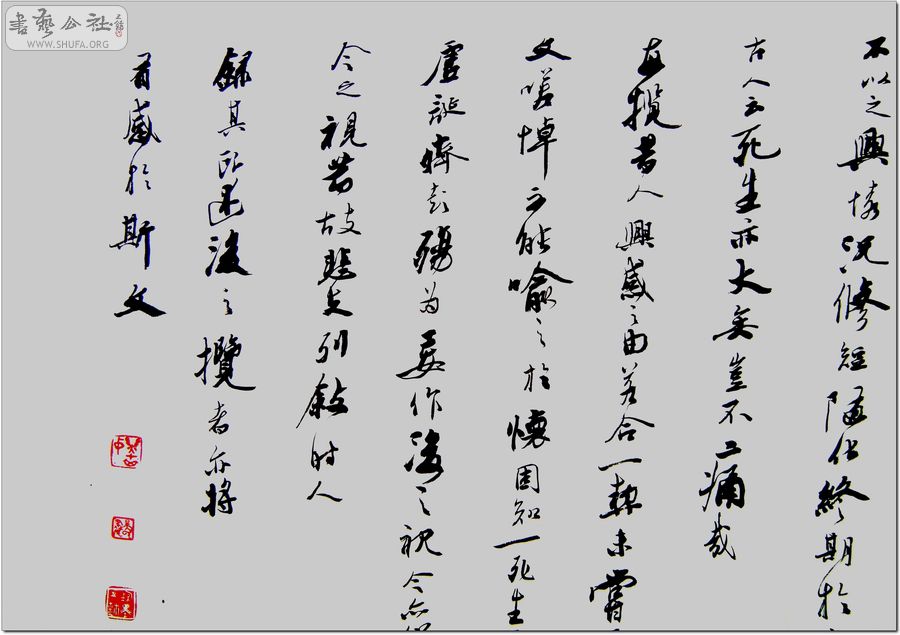 書藝公社
WWW.SHUFA.ORG
不以之興懷況脩短隨化終期於
古人云死生亦大矣豈不痛哉
每攬昔人興感之由若合一契未嘗
文嗟悼不能喻之於懷固知一死生
虛誕齊彭殤為妄作後之視今亦
今之視昔故悲夫列敘時人
錄其所述後之攬者亦將
有感於斯文